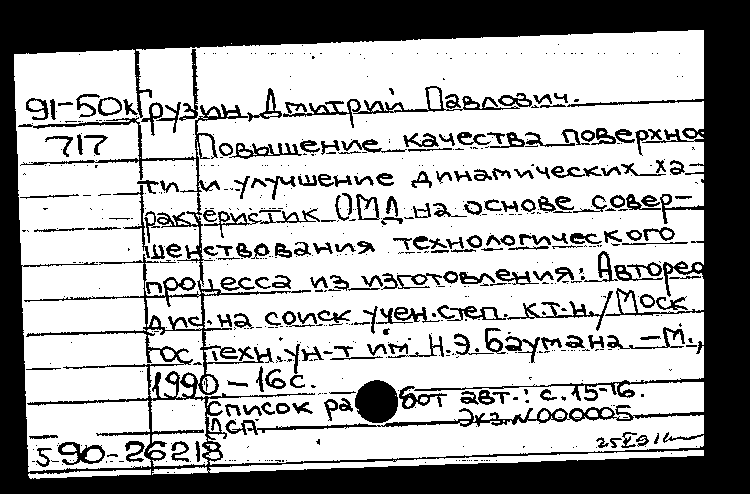 91-50к Грузин, Дмитрий Павлович.
717 Повышение качества поверхнос
ти и улучшение динамических ха-
рактеристик ОМД на основе совер-
шенствования технологического
процесса из изготовления: Авторед
дис. на соиск учен. степ. к.т.н. / Моск
гос техн. ун-т им. Н.Э. Баумана. — М.,
1990. — 16 с.
Список работ авт.: с. 15-16.
ДСП. Экз. N 000005
5 90-26218